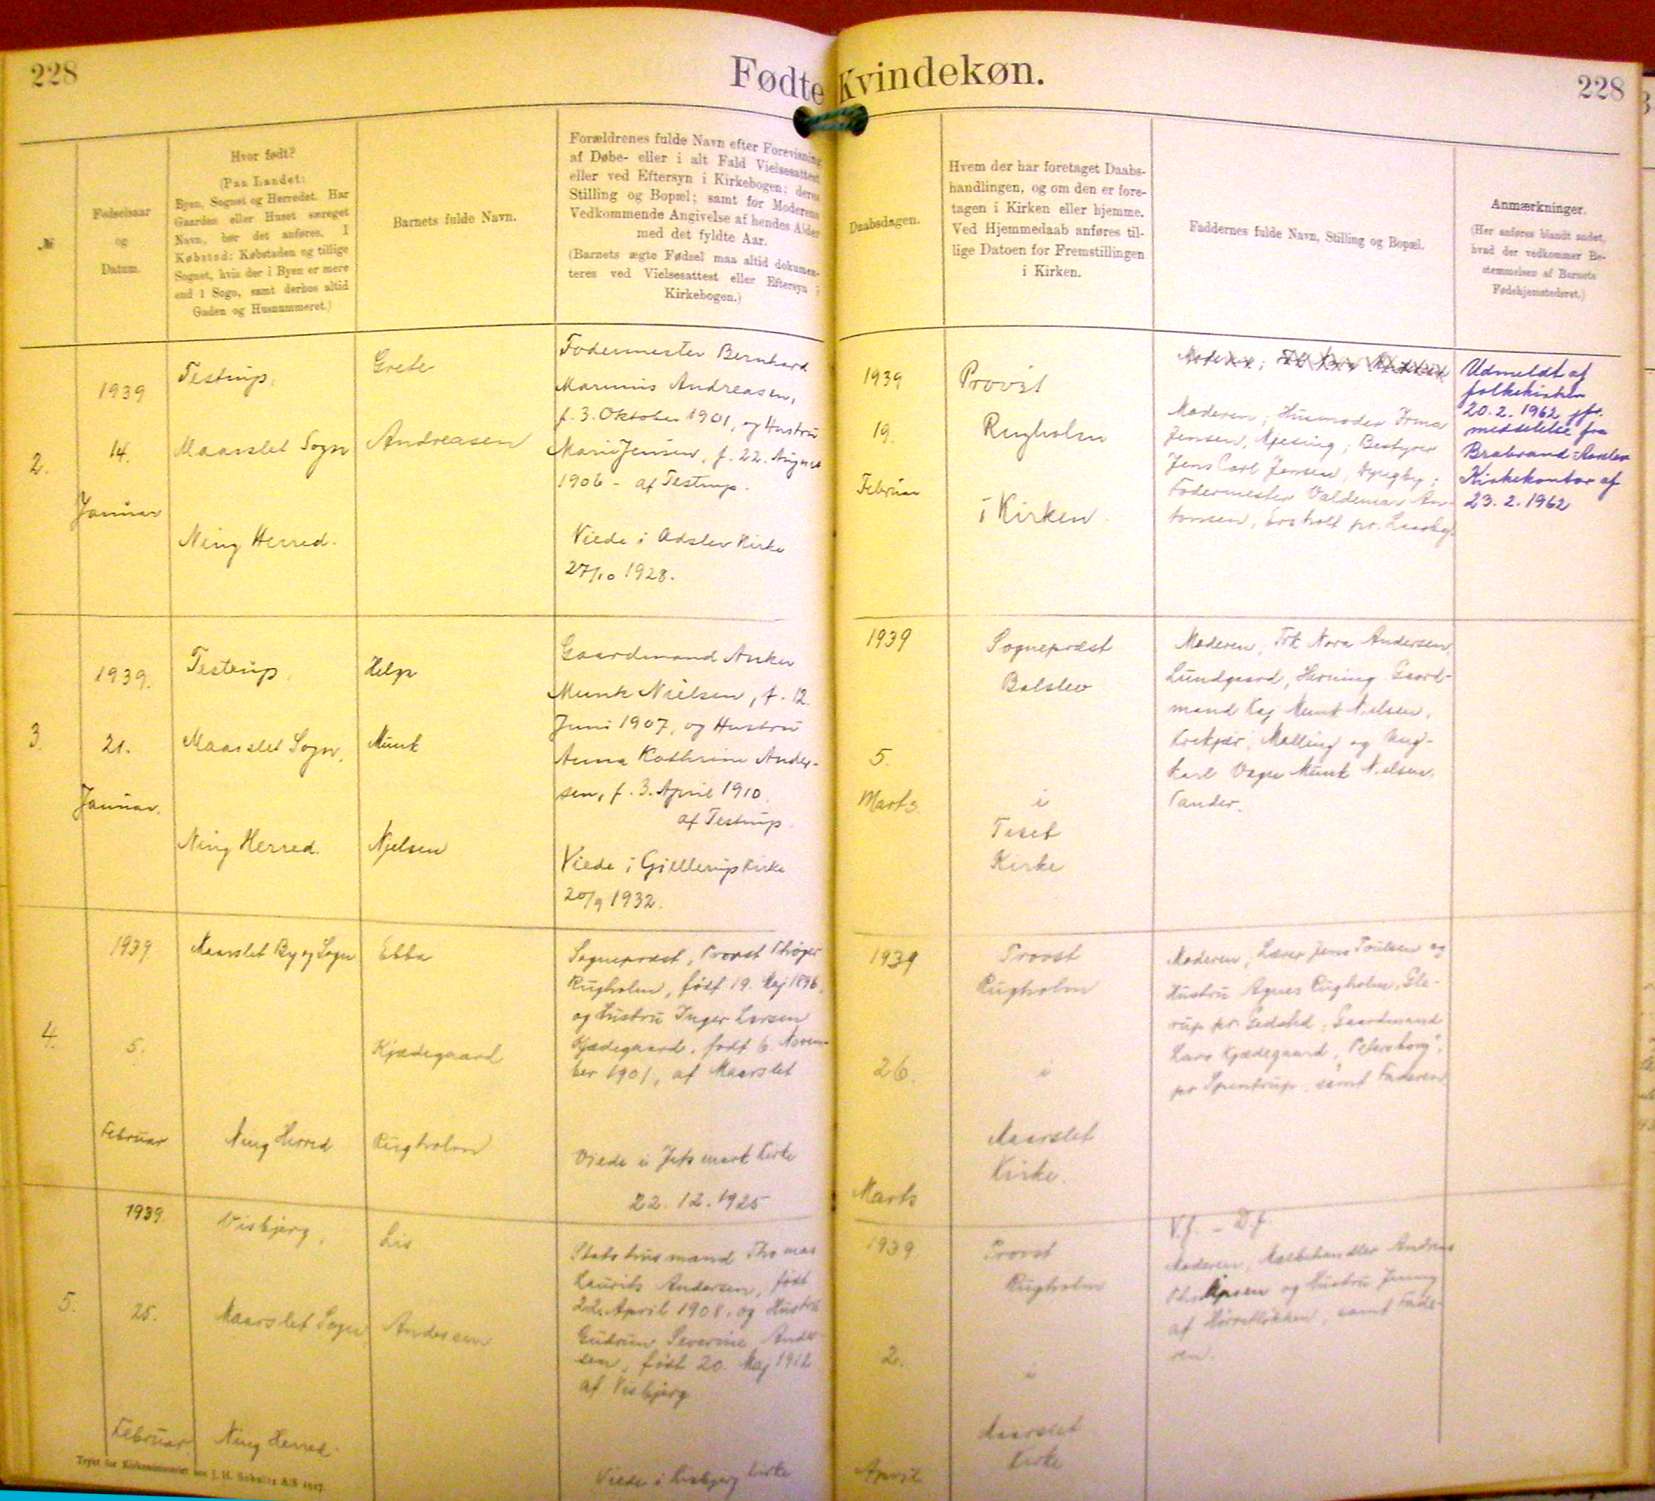 228
Fødte Kvindekøn.
228
№
Fødselsaar
og
Datum.
Hvor født?
(Paa Landet:
Byen, Sognet og Herredet. Har
Gaarden eller Huset særeget
Navn, bør det anføres. I
Købstad: Købstaden og tillige
Sognet, hvis der i Byen er mere
end 1 Sogn, samt derhos altid
Gaden og Husnummeret.)
Barnets fulde Navn.
Forældrenes fulde Navn efter Forevisning
af Døbe- eller i alt Fald Vielsesattest
eller ved Eftersyn i Kirkebogen; deres
Stilling og Bopæl; samt for Moderens
Vedkommende Angivelse af hendes Alder
med det fyldte Aar.
(Barnets ægte Fødsel maa altid dokumen-
teres ved Vielsesattest eller Eftersyn i
Kirkebogen.)
Daabsdagen.
Hvem der har foretaget Daabs-
handlingen, og om den er fore-
tagen i Kirken eller hjemme.
Ved Hjemmedaab anføres til-
lige Datoen for Fremstillingen
i Kirken.
Faddernes fulde Navn, Stilling og Bopæl.
Anmærkninger.
(Her anføres blandt andet,
hvad der vedkommer Be-
stemmelsen af Barnets
Fødehjemstedsret.)
2.
1939
14.
Januar
Testrup,
Maarslet Sogn
Ning Herred.
Grete
Andreasen
Fodermester Bernhard
Marinus Andreasen,
f. 3. Oktober 1901, og Hustru
Marie Jensen, f. 22. August
1906 - af Testrup.
Viede i Adslev Kirke
27/10 1928.
1939
19.
Februar
Provst
Rugholm
i Kirken.
Moderen;
Moderen; Husmoder Irma
Jensen, Bestyrer
Jens Carl Jensen,
Fodermester Valdemar An-
tonsen, pr. Laasby.
Udmeldt af
folkekirken
20.2.1962 jfr.
meddelelse fra
Brabrand-Aarslev
Kirkekontor af
23.2.1962
3.
1939.
21.
Januar.
Testrup,
Maarslet Sogn,
Ning Herred.
Helga
Munk
Njelsen
Gaardmand Anker
Munk Nielsen, f. 12
Juni 1907, og Hustru
Anna Kathrine Ander-
sen, f. 3. April 1910.
af Testrup.
Viede i Gjellerup Kirke
20/9 1932.
1939
5.
Marts.
Sognepræst
Balslev
i
Tiset
Kirke
Moderen, Frk Nora Andersen,
Lundgaard, Herning Gaard-
mand Kaj Munk Nielsen,
Malling og Ung-
karl Vagn Munk Nielsen,
Tander.
4.
1939
5.
Februar
Maarslet By og Sogn
Ning Herred
Ebba
Kjædegaard
Rugholm
Sognepræst, Provst Thøger
Rugholm, født 19. Maj 1896,
og Hustru Inger Larsen
Kjædegaard, født 6. Novem-
ber 1901, af Maarslet
Viede i Jetsmark Kirke
22.12.1925
1939
26.
Marts
Provst
Rugholm
i
Maarslet
Kirke.
Moderen, Lærer Jens Poulsen og
Hustru Agnes Rugholm, Gle-
rup pr Gedsted, Gaardmand
Lars Kjædegaard, "Petersborg",
pr Spentrup, samt Faderen
5.
1939.
25.
Februar
Visbjerg,
Maarslet Sogn
Ning Herred.
Lis
Andersen
Statshusmand Thomas
Laurits Andersen, født
22. April 1908, og Hustru
Gudrun Severine Ander-
sen, født 20. Maj 1912
af Visbjerg
Viede i Kirke
1939
2.
April
Provst
Rugholm
i
Maarslet
Kirke
V.f. - D.f.
Moderen, Andreas
og Hustru Jenny
af samt Fade-
ren.
Trykt for Kirkeministeriet hos J. H. Schultz A/S 1927